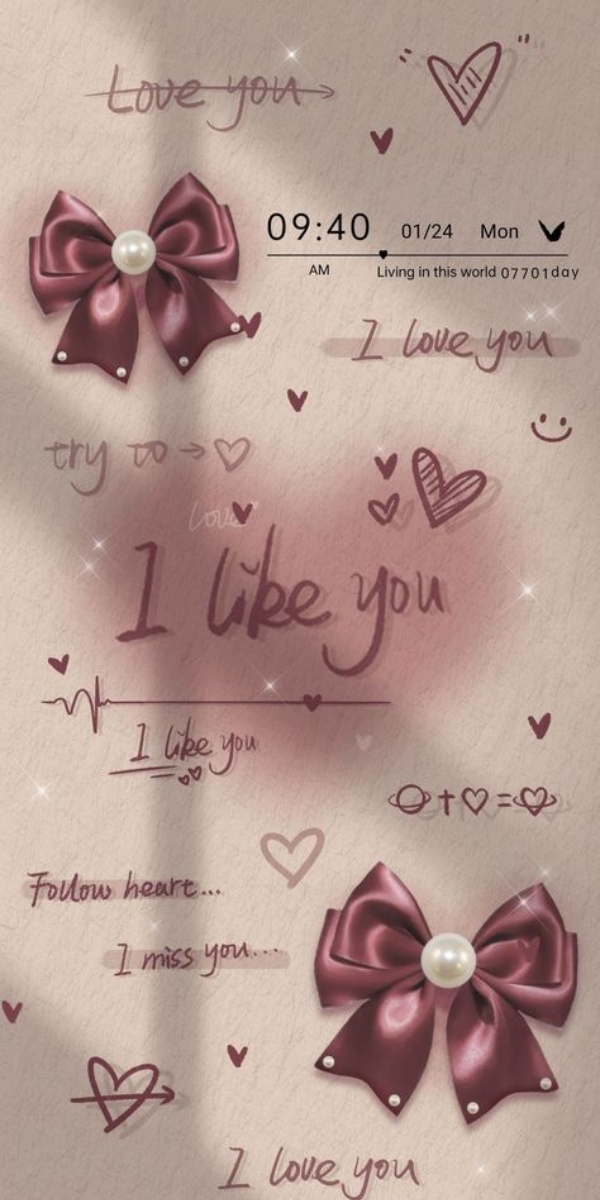 Love you
09:40 01/24 Mon
AM Living in this world 07701day
I love you
try to →
love
I like you
I like you
Follow heart...
I miss you...
I love you